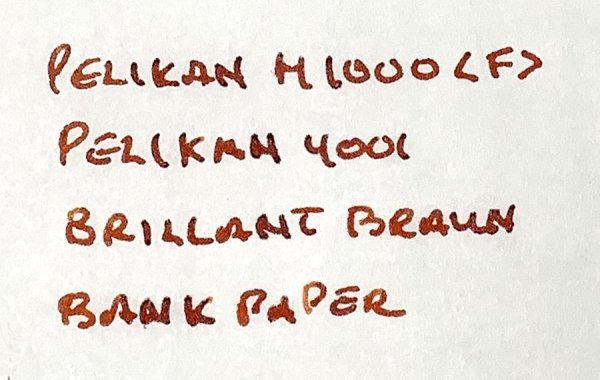 PELIKAN M1000 <F>
PELIKAN 4001
BRILLANT BRAUN
BANK PAPER